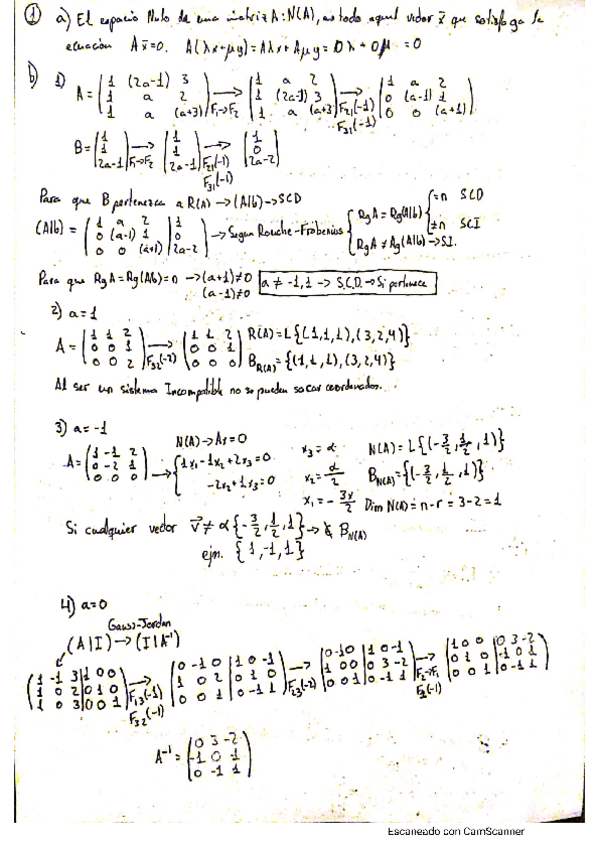 ① a) El espacio Nulo de una matriz A: N(A), es todo aquel vector x̄ que satisfaga la
ecuación A x̄ = 0. A(λx+μy) = Aλx + Aμy = 0λ + 0μ = 0
b) 1) A = (1 (2a-1) 3; 1 a 2; 1 a (a+3)) → F1→F2 (1 a 2; 1 (2a-1) 3; 1 a (a+3)) → F21(-1) F31(-1) (1 a 2; 0 (a-1) 1; 0 0 (a+1))
B = (1; 1; 2a-1) → F1→F2 (1; 1; 2a-1) → F21(-1) F31(-1) (1; 0; 2a-2)
Para que B pertenezca a R(A) → (A|b) → SCD
(A|b) = (1 a 2 | 1; 0 (a-1) 1 | 0; 0 0 (a+1) | 2a-2) → Segun Rouche-Frobenius { RgA = Rg(A|b) { =n SCD
≠n SCI
RgA ≠ Rg(A|b) → S.I.
Para que RgA = Rg(A|b) = n → (a+1)≠0
(a-1)≠0
a ≠ -1, 1 → S.C.D. → Si pertenece
2) a=1
A = (1 1 2; 0 0 1; 0 0 2) → F32(-2) (1 1 2; 0 0 1; 0 0 0) R(A) = L{(1,1,1), (3,2,4)}
B R(A) = {(1,1,1), (3,2,4)}
Al ser un sistema Incompatible no se pueden sacar coordenadas.
3) a=-1
A = (1 -1 2; 0 -2 1; 0 0 0) → N(A) → Ax = 0 { 1x₁ - 1x₂ + 2x₃ = 0
-2x₂ + 1x₃ = 0
x₃ = α
x₂ = α/2
x₁ = -3α/2
N(A) = L{(-3/2, 1/2, 1)}
B N(A) = {(-3/2, 1/2, 1)}
Dim N(A) = n-r = 3-2 = 1
Si cualquier vector v⃗ ≠ α{-3/2, 1/2, 1} → ∉ B N(A)
ejm. {1, -1, 1}
4) a=0
Gauss-Jordan
(A|I) → (I|A⁻¹)
(1 -1 3 | 1 0 0; 1 0 2 | 0 1 0; 1 0 3 | 0 0 1) → F13(-1) F32(-1) (0 -1 0 | 1 0 -1; 1 0 2 | 0 1 0; 0 0 1 | 0 -1 1) → F23(-2) (0 -1 0 | 1 0 -1; 1 0 0 | 0 3 -2; 0 0 1 | 0 -1 1) → F2→F1 F2(-1) (1 0 0 | 0 3 -2; 0 1 0 | -1 0 1; 0 0 1 | 0 -1 1)
A⁻¹ = (0 3 -2; -1 0 1; 0 -1 1)
Escaneado con CamScanner